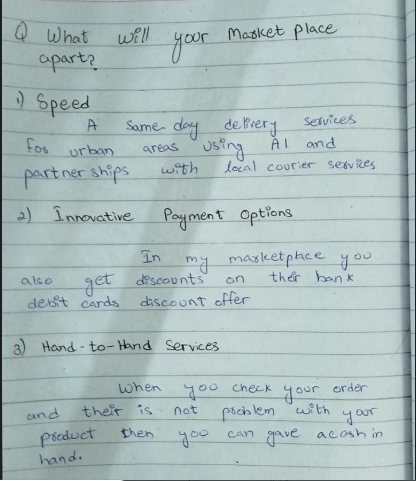 Q What will your Market place
apart?
1) Speed
A same day delivery services
for urban areas using AI and
partner ships with local courier services
2) Innovative Payment Options
In my marketplace you
also get discounts on their bank
debit cards discount offer
3) Hand-to-Hand Services
When you check your order
and their is not problem with your
product then you can gave a cash in
hand.